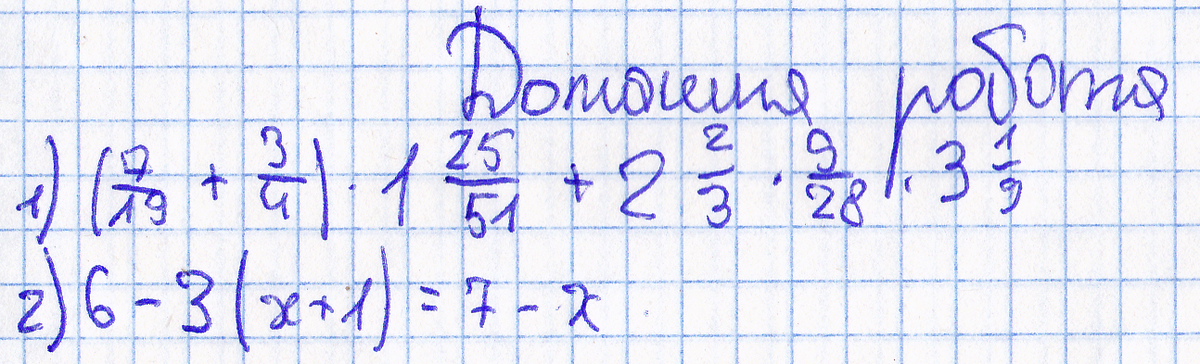 Домашня робота
1) (7/19 + 3/4) · 1 25/51 + 2 2/3 · 9/28 · 3 1/9
2) 6 - 3 (x + 1) = 7 - x